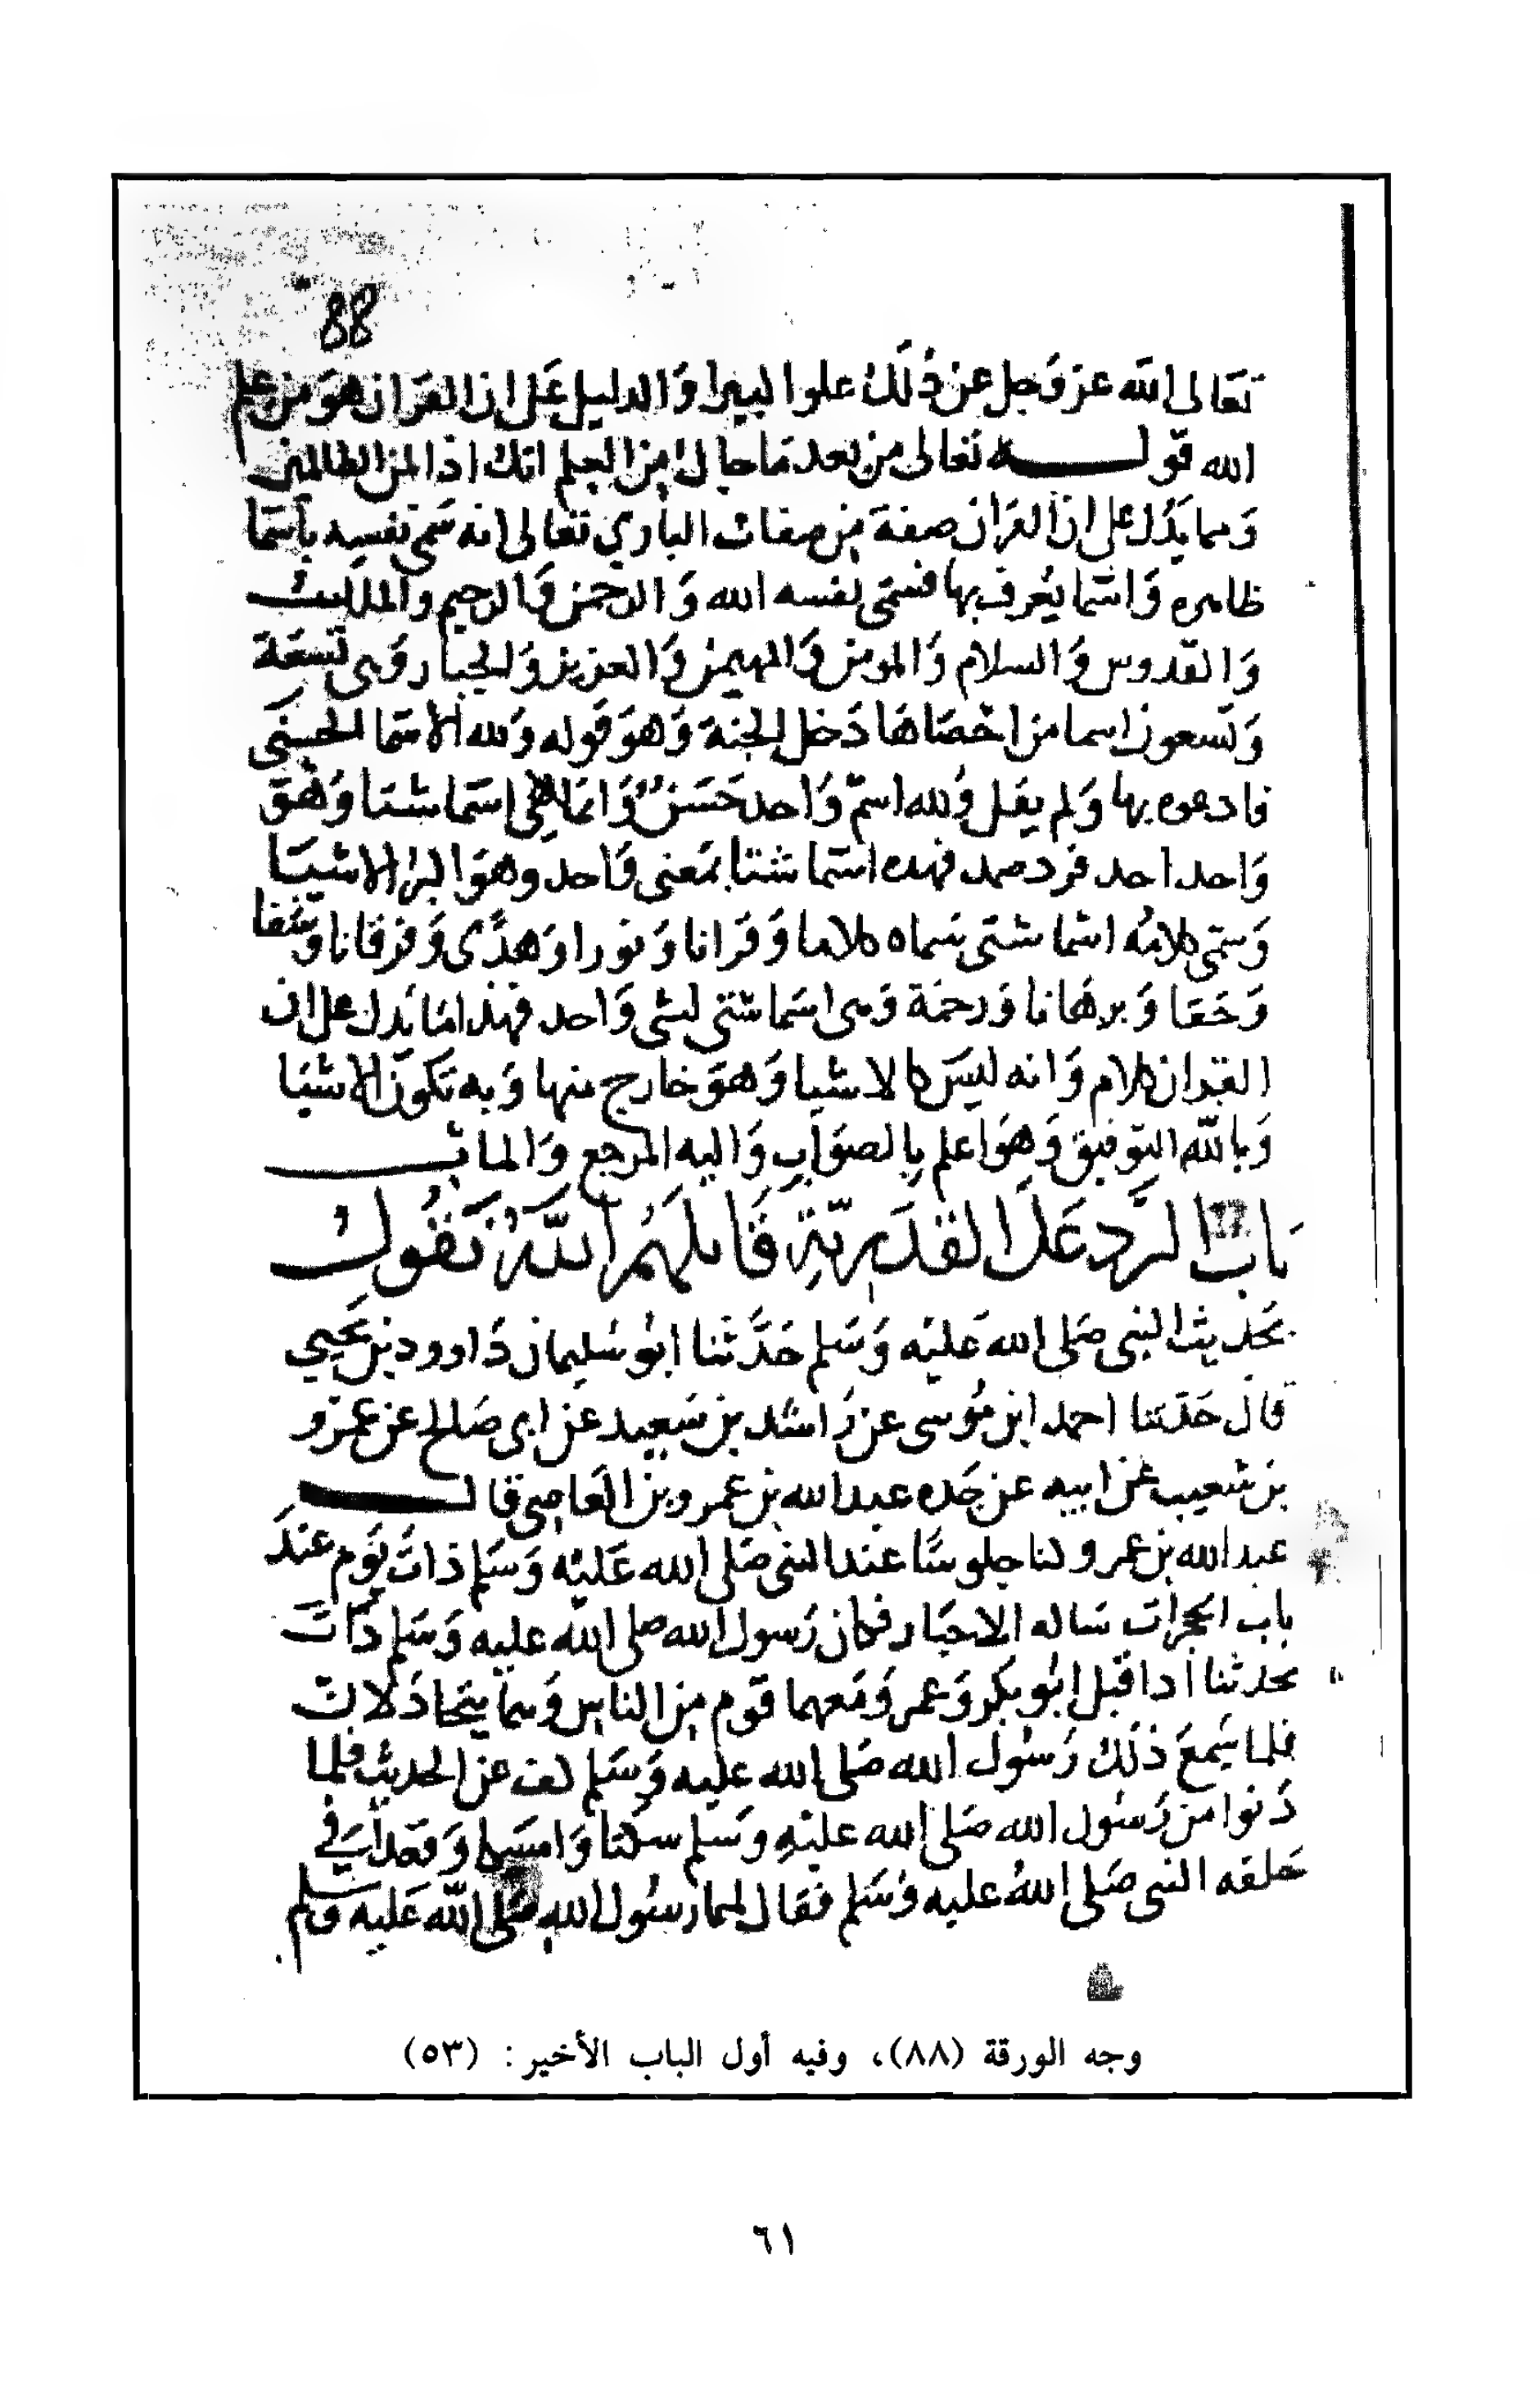 88
تعالى الله عز وجل عن ذلك علوا كبيرا والدليل على ان القران هو من علم
الله قوله تعالى من بعد ما جاك من العلم انك اذا لمن الظالمين
ومما يدل على ان القران صفة من صفات الباري تعالى انه سمى نفسه باسما
ظاهره واسما يعرف بها فسمى نفسه الله والرحمن والرحيم والملك
والقدوس والسلام والمومن والمهيمن والعزيز والجبار وهي تسعة
وتسعون اسما من احصاها دخل الجنة وهو قوله ولله الاسما الحسنى
فادعوه بها ولم يقل ولله اسم واحد حسن وانما هي اسما شتا وهو
واحد احد فرد صمد فهده اسما شتا بمعنى واحد وهو اكبر الاشيا
وسمى كلامه اسما شتى سماه كلاما وقرانا ونورا وهدى وفرقانا وشفا
وحقا وبرهانا ورحمة وهي اسما شتى لشي واحد فهذا مما يدل على ان
القران كلام وانه ليس كالاشيا وهو خارج منها وبه تكون الاشيا
وبالله التوفيق وهو اعلم بالصواب واليه المرجع والماب
باب الرد على القدرية قاتلهم الله نقول
بحديث النبي صلى الله عليه وسلم حدثنا ابو سليمان داوود بن يحيي
قال حدثنا احمد ابن موسى عن راشد بن سعيد عن ابي صالح عن عمرو
بن شعيب عن ابيه عن جده عبد الله بن عمرو بن العاصي قال
عبد الله بن عمرو كنا جلوسا عند النبي صلى الله عليه وسلم ذات يوم عند
باب الحجرات ساله الاحبار فكان رسول الله صلى الله عليه وسلم ذات
يحدثنا ادا قبل ابو بكر وعمر ومعهما قوم من الناس وهما يتجادلان
فلما سمع ذلك رسول الله صلى الله عليه وسلم كف عن الحديث فلما
دنوا من رسول الله صلى الله عليه وسلم سكتا وامسكا وقعدا في
حلقه النبي صلى الله عليه وسلم فقال لهما رسول الله صلى الله عليه وسلم
وجه الورقة (٨٨)، وفيه أول الباب الأخير: (٥٣)
٦١